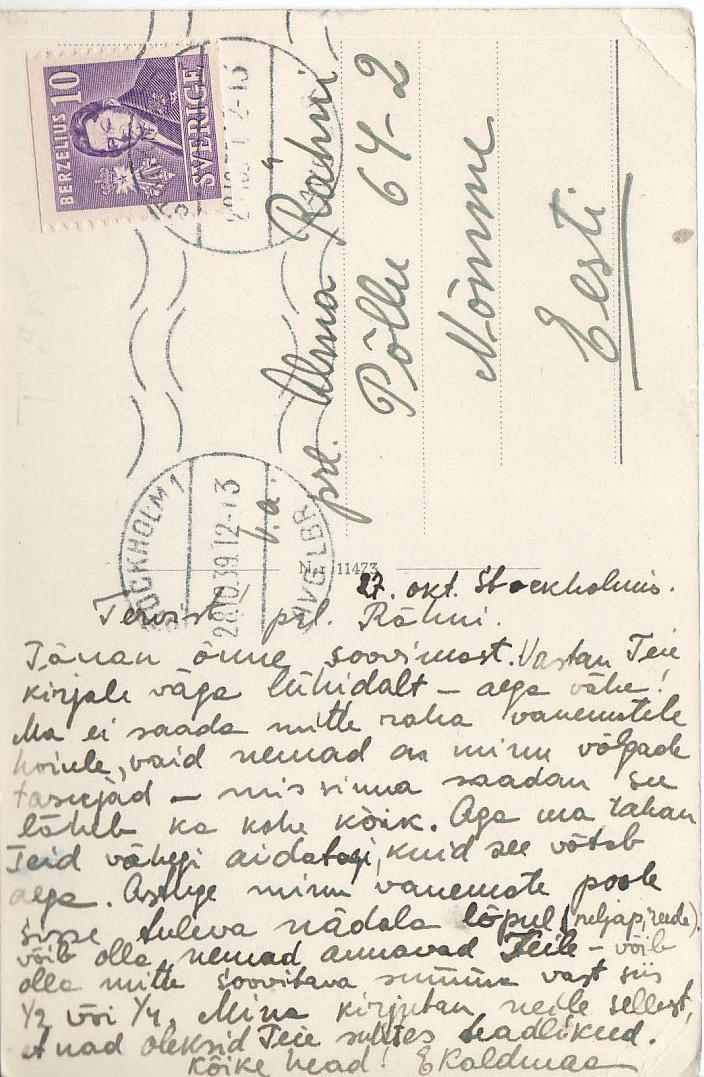 BERZELIUS 10
SVERIGE
STOCKHOLM 1
28.10.39.12-13
prl. Alma Rähni
Põllu 64-2
Nõmme
Eesti
N:r 11473
27. okt. Stockholmis.
Tervist! prl. Rähni.
Tänan õnne soovimast. Vastan Teie
kirjale väga lühidalt – aega vähe!
Ma ei saada mitte raha vanematele
hoiule, vaid nemad on minu võlgade
tasujad – mis sinna saadan see
läheb ka kohe kõik. Aga ma tahan
Teid vähegi aidata, kuid see võtab
aega. Astuge minu vanemate poole
sisse tuleva nädala lõpul (neljap, reede).
võib olla nemad annavad Teile – võib
olla mitte soovitava summa vast siis
1/2 või 1/4. Mina kirjutan neile sellest,
et nad oleksid Teie suhtes teadlikud.
Kõike head! EKaldmaa